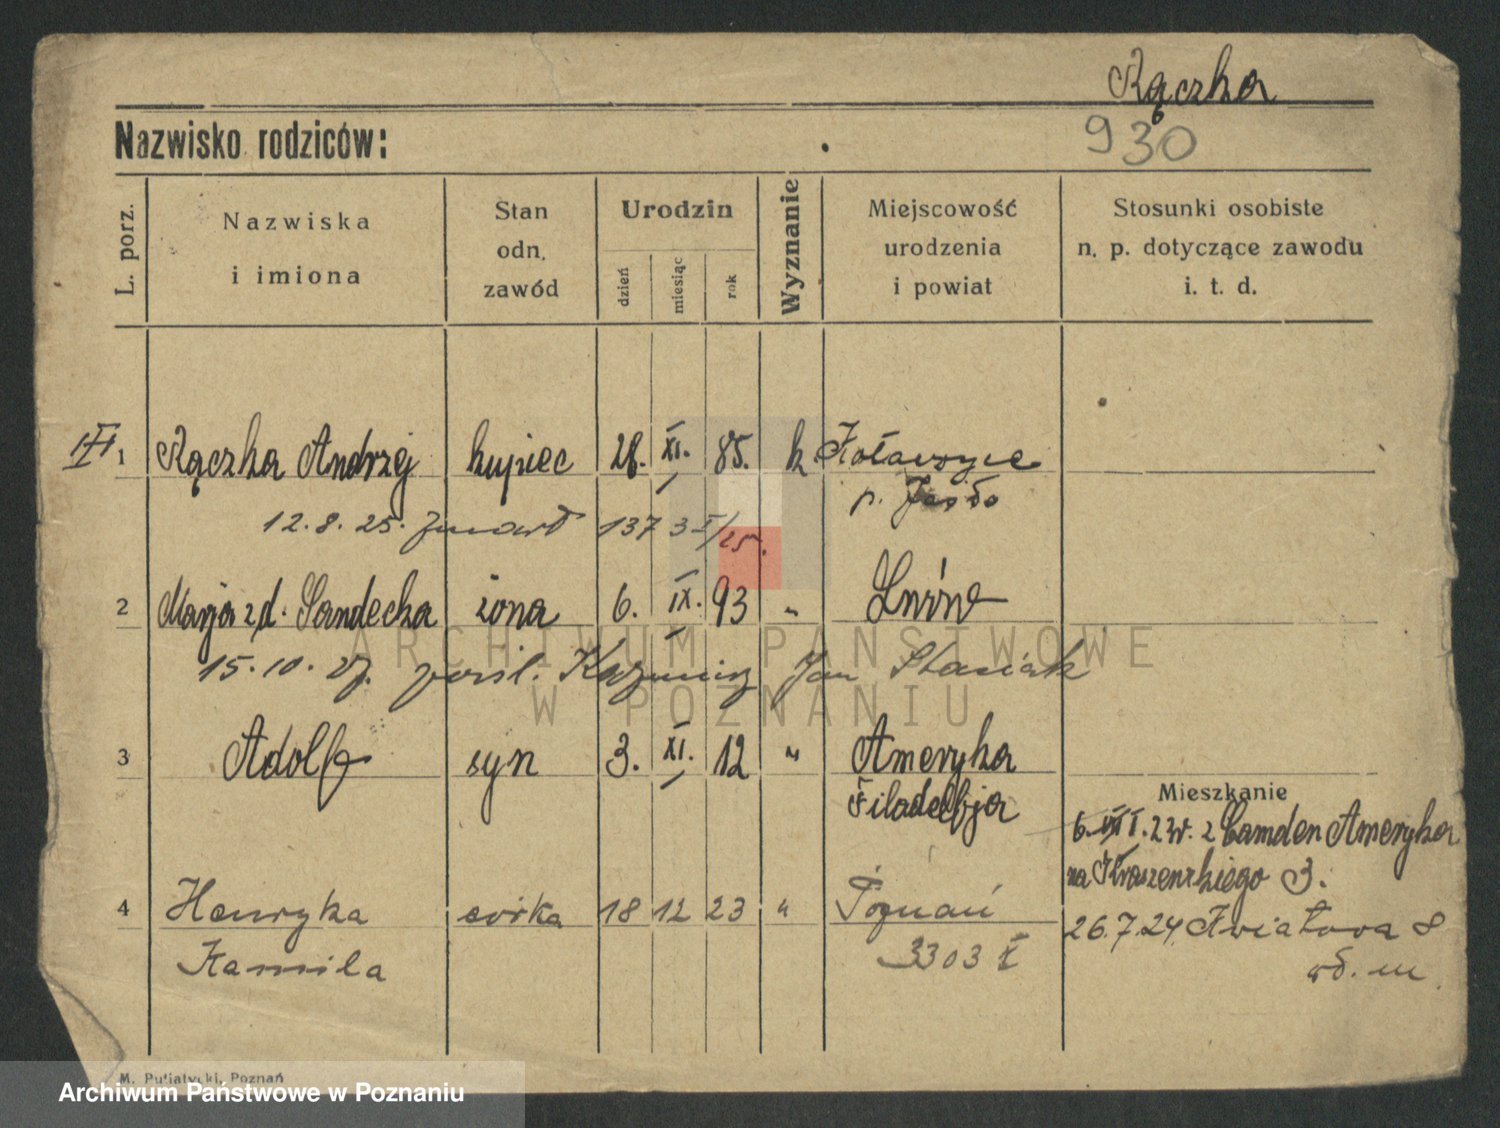 Rączka
930
Nazwisko rodziców:
L. porz.
Nazwiska
i imiona
Stan
odn.
zawód
Urodzin
dzień
miesiąc
rok
Wyznanie
Miejscowość
urodzenia
i powiat
Stosunki osobiste
n. p. dotyczące zawodu
i. t. d.
1 Rączka Andrzej kupiec 28. XI. 85. k Kołaczyce
p. Jasło
12.8.25. zmarł 137 3 I/25.
2 Marja z d. Sandecka żona 6. IX. 93 " Lwów
15.10.27. Kazmierz Jan Stasiak
3 Adolf syn 3. XI. 12 " Ameryka
Filadelfja
Mieszkanie
6. 2 Camden Ameryka
na Kraszewskiego 3.
4 Henryka córka 18 12 23 " Poznań
26.7.24. Kwiatowa 8
Kamila
3303 I
wł. m.
M. Putiatycki, Poznań
ARCHIWUM PAŃSTWOWE
W POZNANIU
Archiwum Państwowe w Poznaniu